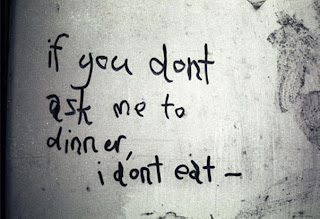 if you dont
ask me to
dinner,
i dont eat –